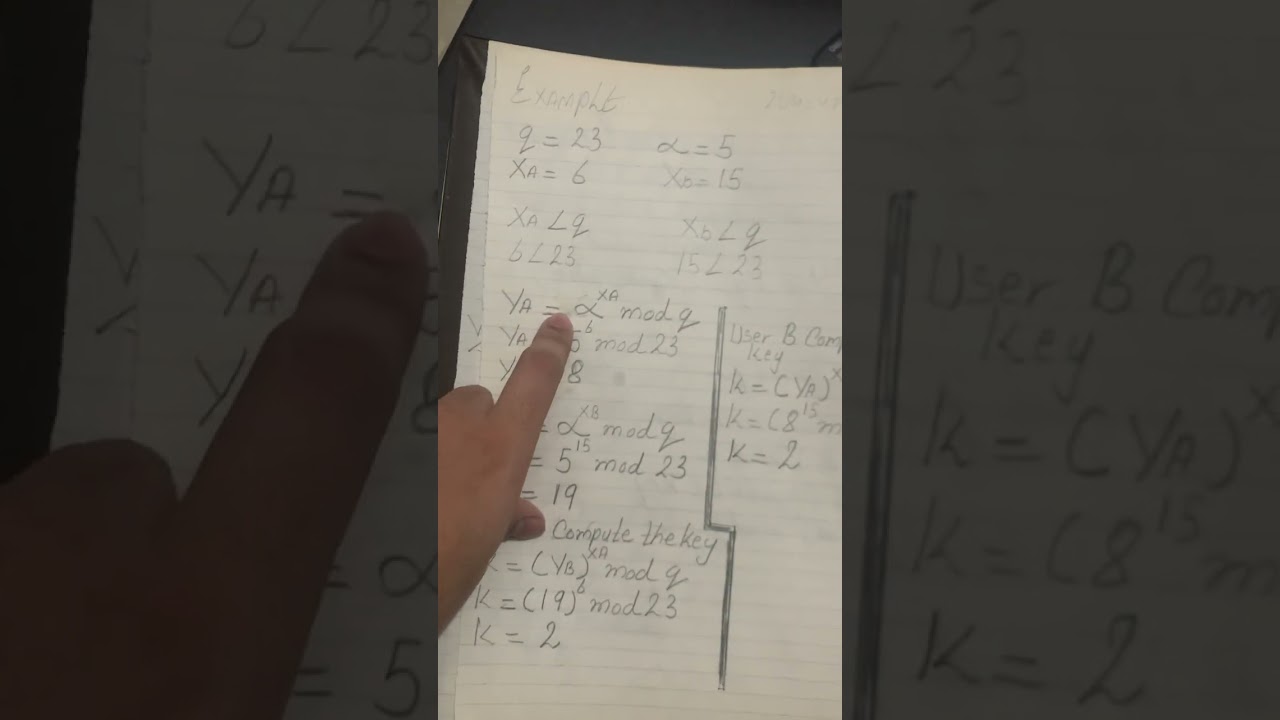 Example
q = 23 α = 5
XA = 6 Xb = 15
XA < q Xb < q
6 < 23 15 < 23
YA = α^XA mod q
YA 5^6 mod 23
Y 8
= α^XB mod q
= 5^15 mod 23
= 19
Compute the key
K = (YB)^XA mod q
K = (19)^6 mod 23
K = 2
User B Com
key
K = (YA)^X
K = (8^15 m
K = 2